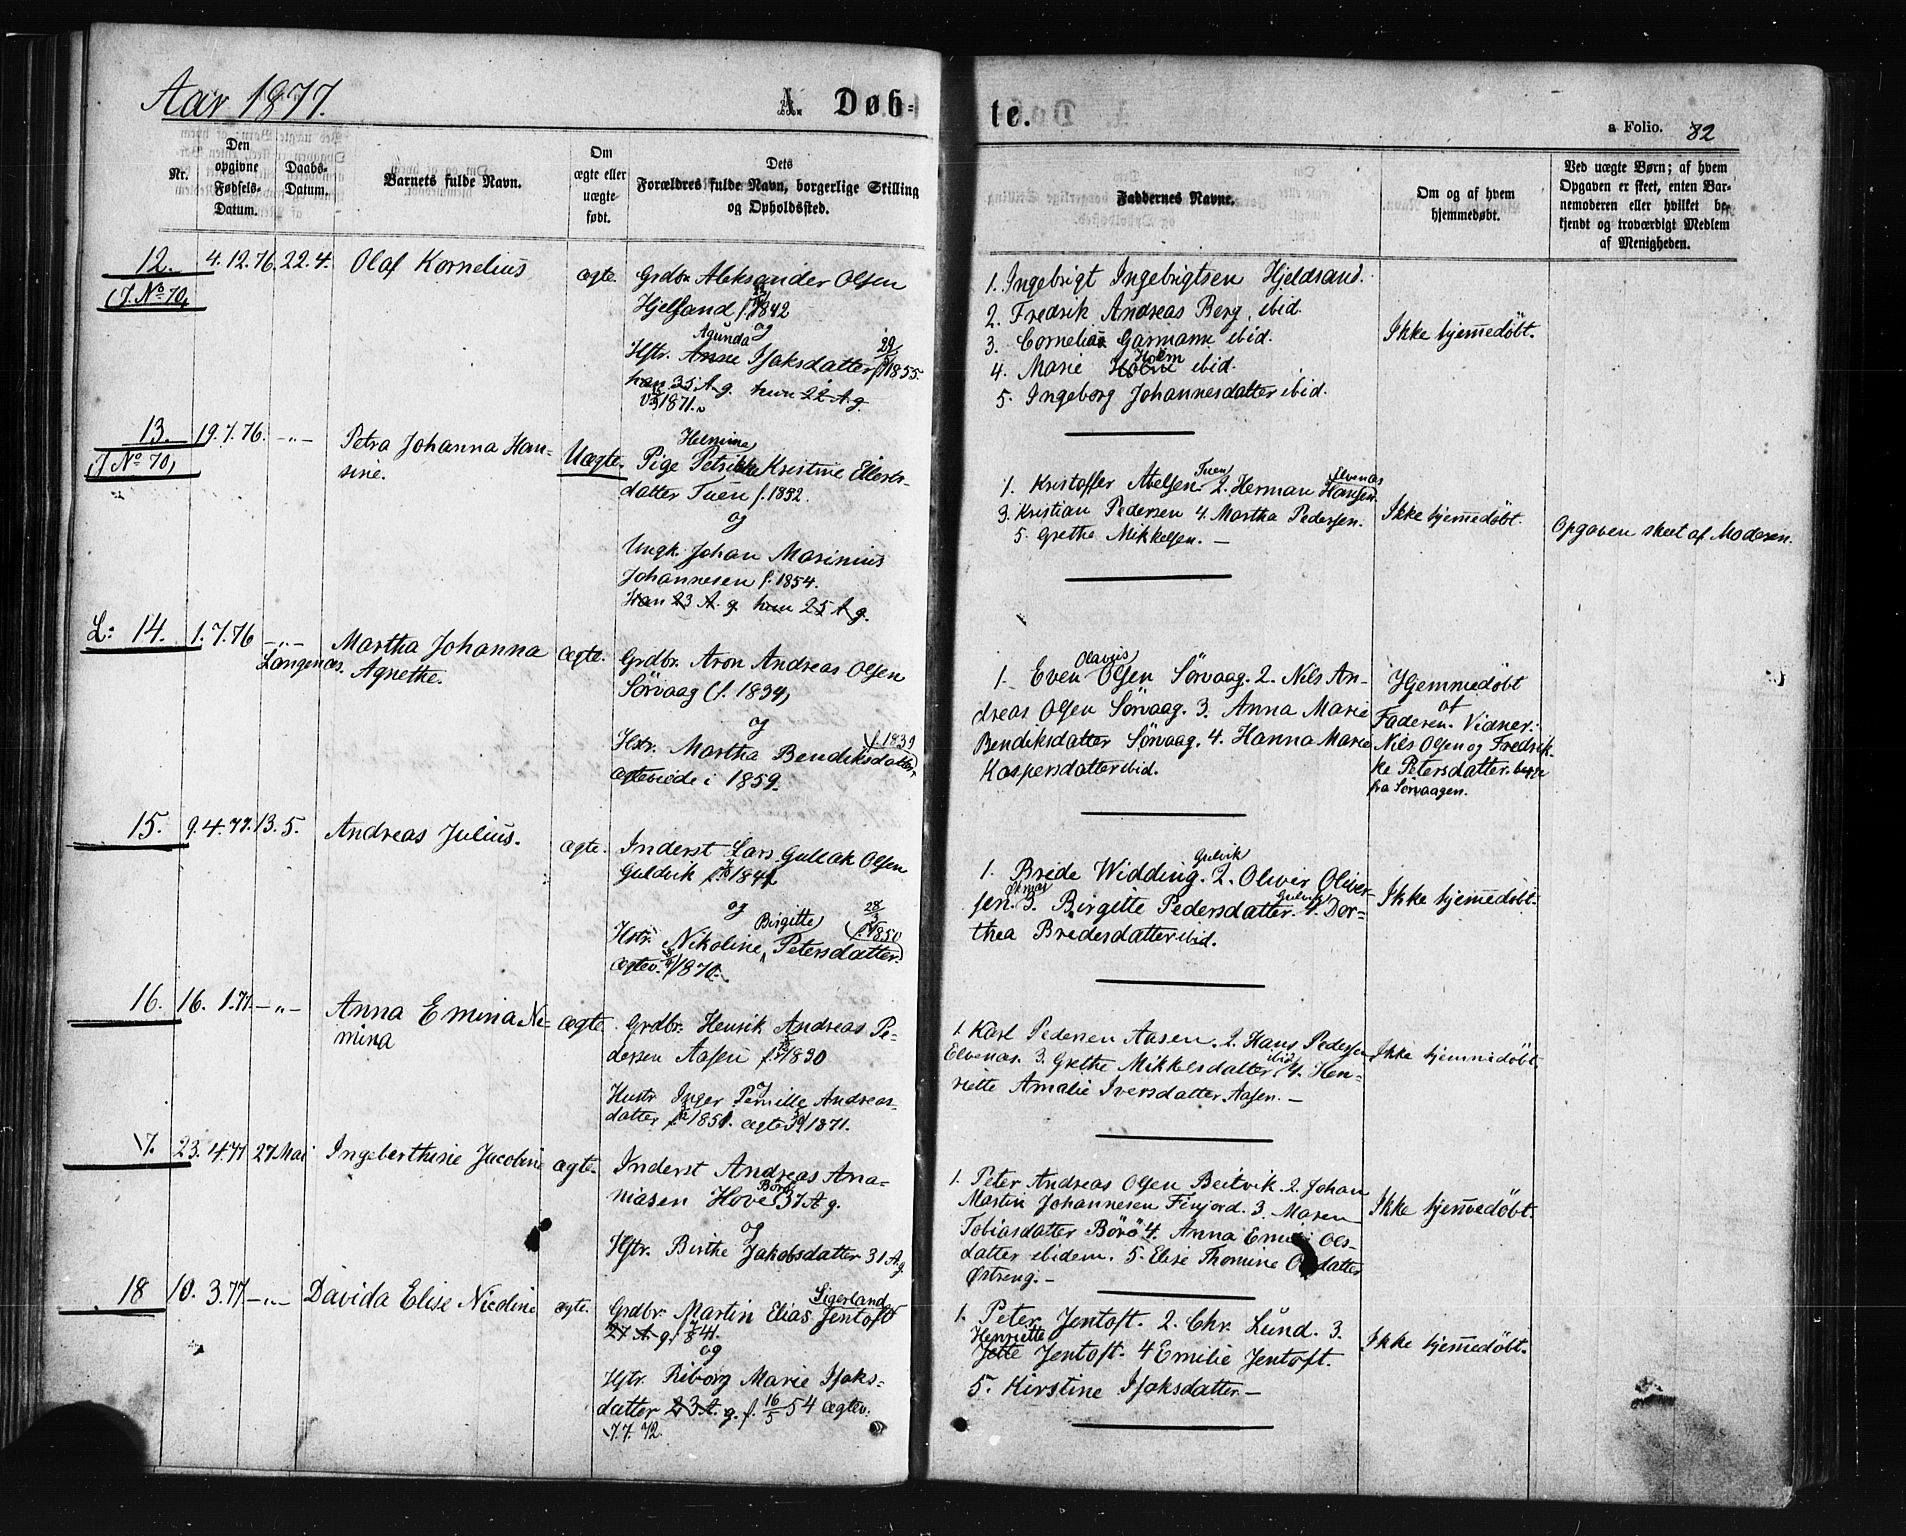 Aar 1877.
A. Døb-
te.
a Folio. 82
Nr.
Den opgivne Fødsels-Datum.
Daabs-Datum.
Barnets fulde Navn.
Om ægte eller uægte født.
Dets Forældres fulde Navn, borgerlige Stilling og Opholdssted.
Faddernes Navne.
Om og af hvem hjemmedøbt.
Ved uægte Børn; af hvem Opgaven er skeet, enten Barnemoderen eller hvilket bekjendt og troværdigt Medlem af Menigheden.
12. 4.12.76. 22.4. Olaf Kornelius ægte.
(J. No 70)
Grdbr. Aleksander Olsen
Hjelsand f. 1842
og
Agunda
Hstr. Anne Isaksdatter f. 29 1855.
han 35 A g. hun 22 A g.
1871.
1. Ingebrigt Ingebrigtsen Hjeldsand.
2. Fredrik Andreas Berg, ibid.
3. Cornelia Garmann ibid.
Holm
4. Marie ibid.
5. Ingeborg Johannesdatter ibid.
Ikke hjemedöbt.
13. 19.7.76. -"- Petra Johanna Han-
sine.
(J No 70)
Uægte.
Helmine
Pige Petrikke Kristine Ellerts-
datter Tuen f. 1852.
og
Ungk. Johan Marinius
Johannesen f. 1854.
Han 23 A. g. hun 25 A g.
Tuen Elvenæs
1. Kristoffer Abelsen. 2. Herman Hansen.
3. Kristian Pedersen 4. Martha Pedersen.
5. Grethe Mikkelsen. -
Ikke hjemedöbt.
Opgaven skeet af Moderen.
L: 14. 1.7.76 -"- Martha Johanna
Langenæs. Agnethe.
ægte.
Grdbr. Aron Andreas Olsen
Sörvaag (f. 1834)
og
f. 1839
Hstr. Martha Bendiksdatter
ægteviede i 1859.
Olaus
1. Even Olsen Sörvaag. 2. Nils An-
dreas Olsen Sörvaag. 3. Anna Marie
Bendiksdatter Sörvaag. 4. Hanna Marie
Kaspersdatter ibid.
Hjemmedöbt
af
Faderen. Vidner:
Nils Olsen og Fredrik-
ke Petersdatter. begge
fra Sörvaagen.
15. 9.4.77. 13.5. Andreas Julius. ægte.
Inderst Lars Gullak Olsen
Guldvik f. 1841
og
Birgitte 28/3 f. 1850
Hstr. Nikoline Petersdatter.
ægtev. 1870.
Gulvik
1. Brede Widding. 2. Oliver Oliver-
sen. 3. Birgitte Pedersdatter. Gulvik 4. Dor-
thea Bredesdatter ibid.
Ikke hjemedöbt.
16. 16. 1.77. -"- Anna Emina Ne-
mina
ægte.
Grdbr. Henrik Andreas Pe-
dersen Aasen f. 1830
Hustr. Inger Pernille Andreas-
datter f. 1851. ægtev. 1871.
1. Karl Pedersen Aasen. 2. Hans Pedersen
Elvenæs. 3. Grethe Mikkelsdatter ibid 4. Hen-
riette Amalie Iversdatter Aasen. -
Ikke hjemmedöbt.
17. 23.4.77 27 Mai Ingeberthine Jacobine ægte.
Inderst Andreas Ana-
niasen Hove Börö 37 A g.
og
Hstr. Birthe Jakobsdatter 31 A g.
1. Peter Andreas Olsen Beitvik. 2. Johan
Martin Johannesen Finjord. 3. Maren
Tobiasdatter Börö 4. Anna Ols-
datter ibidem. 5. Elise Thomine
Østreng. -
Ikke hjemedöbt.
18 10. 3.77. -"- Davida Elise Nicoline ægte.
Sigerland
Grdbr. Martin Elias Jentoft
27 A. g. f. 7/8 41.
og
Hstr. Riborg Marie Isaks-
datter 23 A. g. f. 16/5 54 ægtev.
7.7. 72.
1. Peter Jentoft. 2. Chr. Lund. 3.
Henriette
Jette Jentoft. 4 Emilie Jentoft.
5. Kirstine Isaksdatter. -
Ikke hjemedöbt.